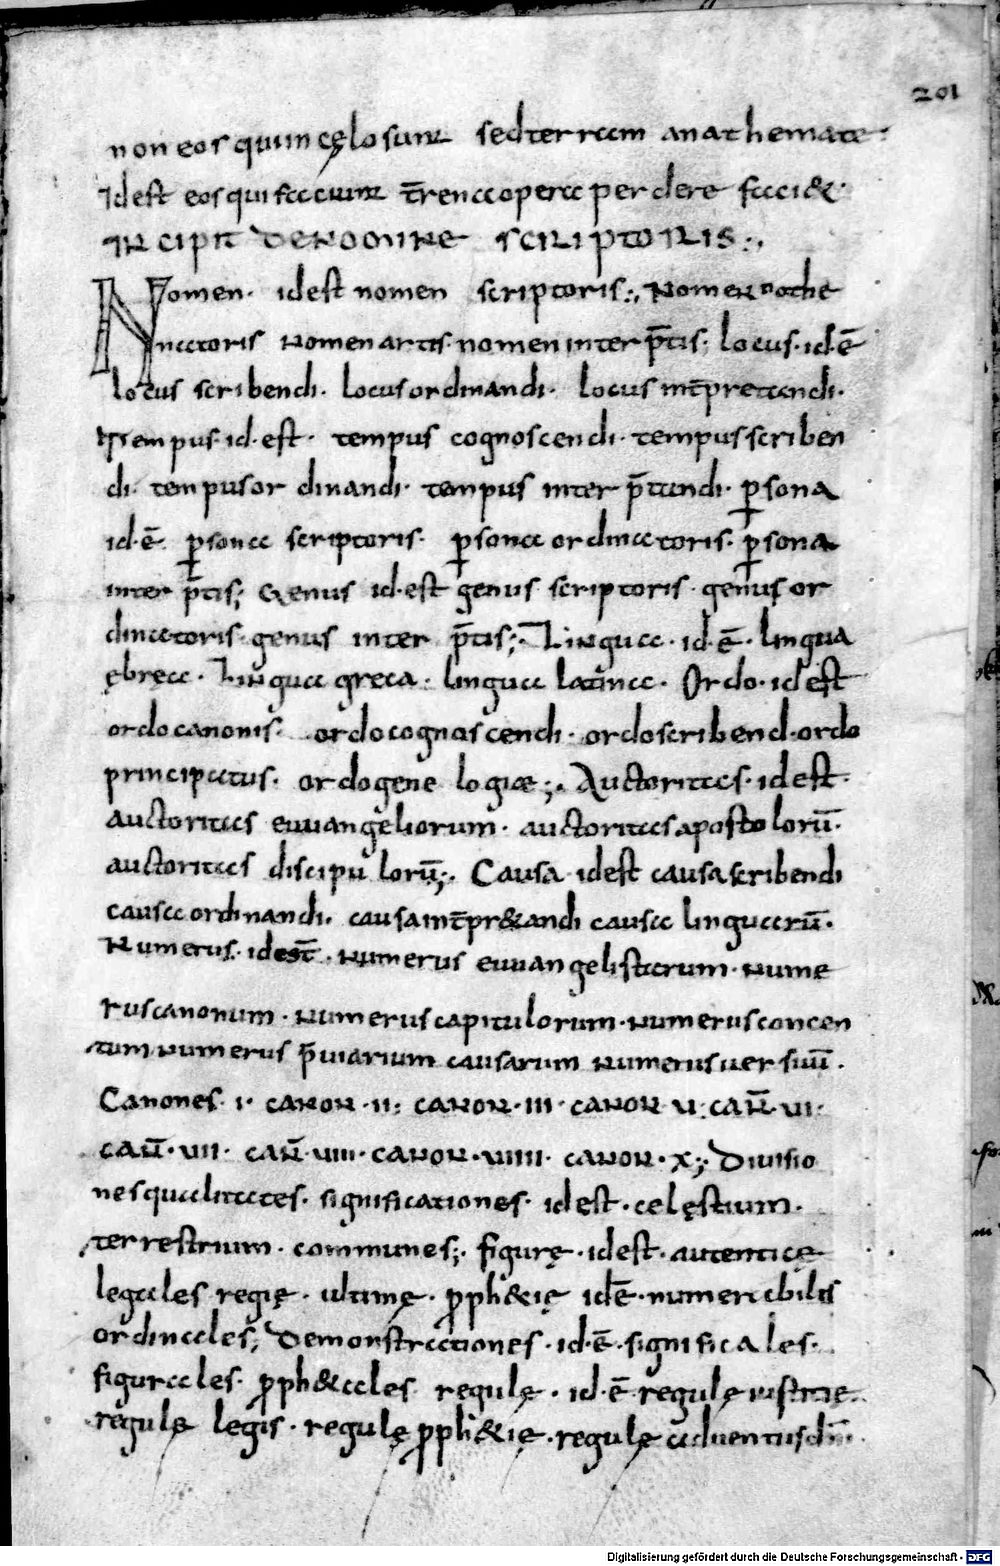 201
non eos qui in cęlo sunt sed terram anathemate
Idest eos qui faciunt t̄rena opera perdere faci&·
INCIPIT DE NOMINE SCRIPTORIS:,
Nomen· idest nomen scriptoris:, Nomen
nomen artis· nomen inter p̄tis; locus· id·ē
locus scribendi· locus ordinandi· locus int̄pretandi·
Tempus· id·est· tempus cognoscendi· tempus scriben
di· tempus ordinandi· tempus inter p̄tandi· p̱sona
id·ē p̱sona scriptoris· p̱sona ordinatoris· p̱sona
inter p̄tis; Genus id·est genus scriptoris· genus or
dinatoris· genus inter p̄tis;· Lingua· id·ē· lingua
ębręa· Lingua gręca· lingua latina· Ordo· idest
ordo canonis· ordo cognoscendi· ordo scribend· ordo
principatus· ordo gene logiæ;· Auctoritas· idest·
auctoritas euuangeliorum· auctoritas apostolorū·
auctoritas discipulorū;· Causa idest causa scribendi
causa ordinandi· causa int̄pr&andi causa linguarū·
Numerus· idest̄· numerus euuangelistarum· nume
rus canonum· numerus capitulorum· numerus concen
tum numerus p̄uiarium causarum numerus uersuū·
Canones· I· CANON· II: CANON· III· CANON· U: CAN̄· UI·
CAN̄· UII· CAN̄· UIII· CANON· UIIII· CANON· X;· Diuisio
nes qualitates· significationes· idest· celęstium·
terrestrium· communes;· figurę· idest· autenticę
legales regię· ultimę· p̱ph&ię idē· numerabilis
ordinales; Demonstrationes· id·ē· significales·
figurales· p̱ph&ales regulę· id·ē regulę iustitię·
regulę legis· regulę p̱ph&ię· regulę aduentus dn̄i·
Digitalisierung gefördert durch die Deutsche Forschungsgemeinschaft - DFG